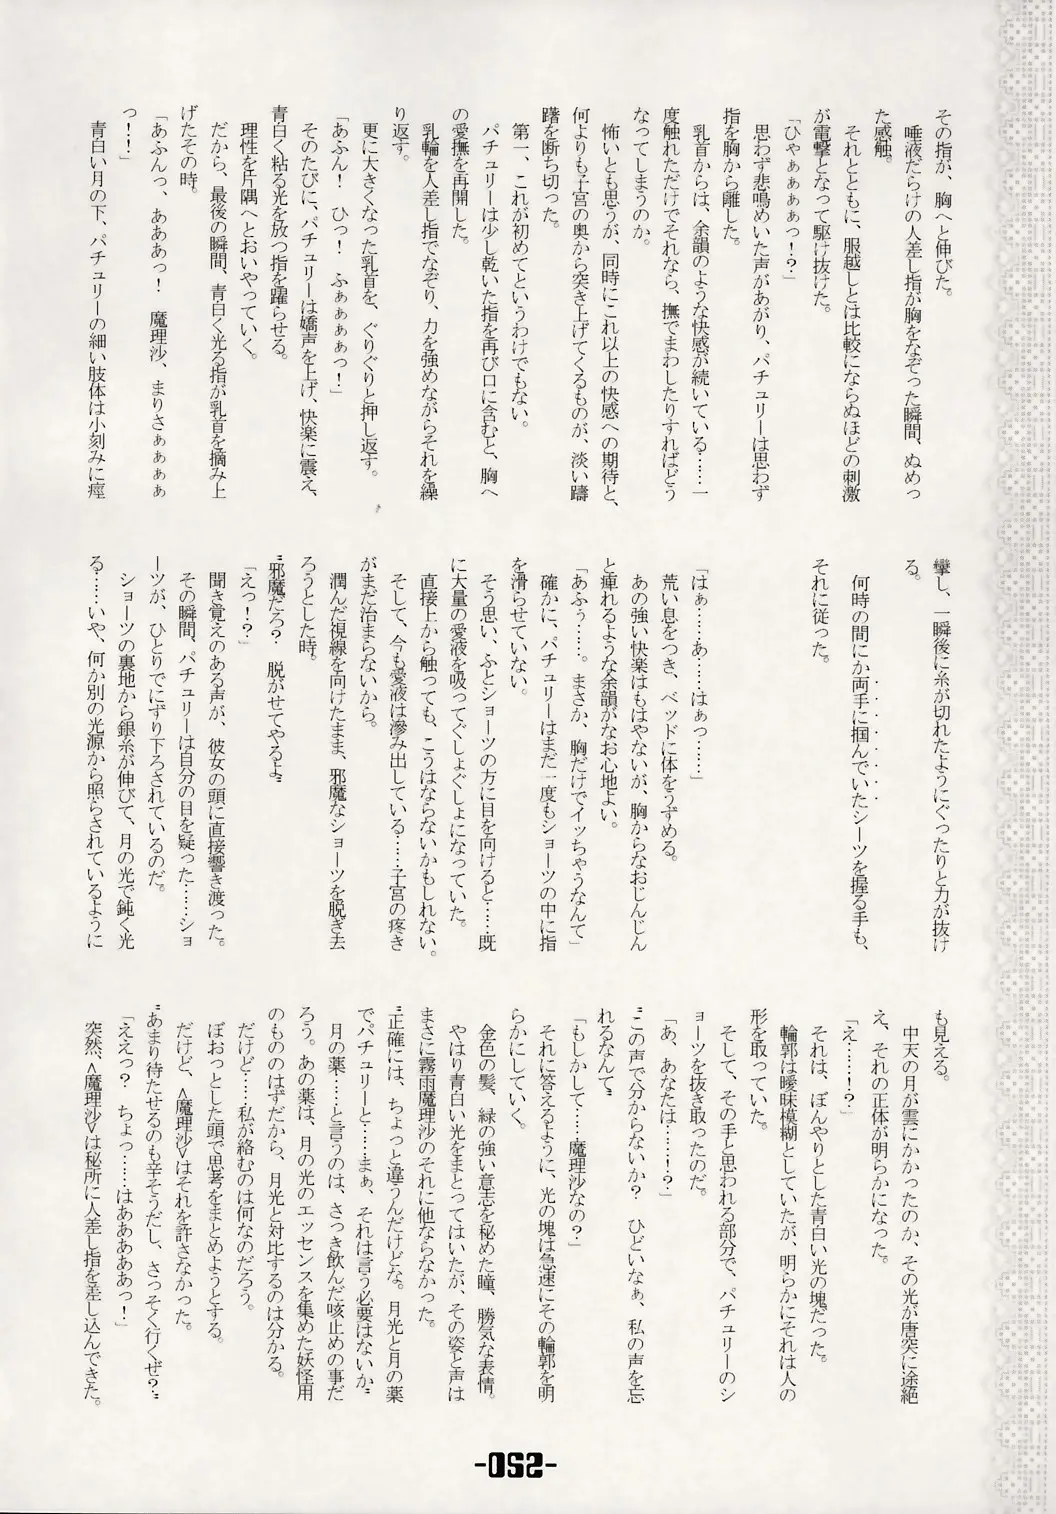 その指が、胸へと伸びた。
唾液だらけの人差し指が胸をなぞった瞬間、ぬめっ
た感触。
それとともに、服越しとは比較にならぬほどの刺激
が電撃となって駆け抜けた。
「ひゃぁぁぁぁっ！？」
思わず悲鳴めいた声があがり、パチュリーは思わず
指を胸から離した。
乳首からは、余韻のような快感が続いている……一
度触れただけでそれなら、撫でまわしたりすればどう
なってしまうのか。
怖いとも思うが、同時にこれ以上の快感への期待と、
何よりも子宮の奥から突き上げてくるものが、淡い躊
躇を断ち切った。
第一、これが初めてというわけでもない。
パチュリーは少し乾いた指を再び口に含むと、胸へ
の愛撫を再開した。
乳輪を人差し指でなぞり、力を強めながらそれを繰
り返す。
更に大きくなった乳首を、ぐりぐりと押し返す。
「あふん！　ひっ！　ふぁぁぁぁっ！」
そのたびに、パチュリーは嬌声を上げ、快楽に震え、
青白く粘る光を放つ指を躍らせる。
理性を片隅へとおいやっていく。
だから、最後の瞬間、青白く光る指が乳首を摘み上
げたその時。
「あふんっ、あああっ！　魔理沙、まりさぁぁぁぁ
っ！！」
青白い月の下、パチュリーの細い肢体は小刻みに痙
攣し、一瞬後に糸が切れたようにぐったりと力が抜け
る。
何時の間にか両手に掴んでいたシーツを握る手も、
それに従った。
「はぁ……あ……はぁっ……」
荒い息をつき、ベッドに体をうずめる。
あの強い快楽はもはやないが、胸からなおじんじん
と痺れるような余韻がなお心地よい。
「あふぅ……。まさか、胸だけでイッちゃうなんて」
確かに、パチュリーはまだ一度もショーツの中に指
を滑らせていない。
そう思い、ふとショーツの方に目を向けると……既
に大量の愛液を吸ってぐしょぐしょになっていた。
直接上から触っても、こうはならないかもしれない。
そして、今も愛液は滲み出している……子宮の疼き
がまだ治まらないから。
潤んだ視線を向けたまま、邪魔なショーツを脱ぎ去
ろうとした時。
〝邪魔だろ？　脱がせてやるよ〟
「えっ！？」
聞き覚えのある声が、彼女の頭に直接響き渡った。
その瞬間、パチュリーは自分の目を疑った……ショ
ーツが、ひとりでにずり下ろされているのだ。
ショーツの裏地から銀糸が伸びて、月の光で鈍く光
る……いや、何か別の光源から照らされているように
も見える。
中天の月が雲にかかったのか、その光が唐突に途絶
え、それの正体が明らかになった。
「え……！？」
それは、ぼんやりとした青白い光の塊だった。
輪郭は曖昧模糊としていたが、明らかにそれは人の
形を取っていた。
そして、その手と思われる部分で、パチュリーのシ
ョーツを抜き取ったのだ。
「あ、あなたは……！？」
〝この声で分からないか？　ひどいなぁ、私の声を忘
れるなんて〟
「もしかして……魔理沙なの？」
それに答えるように、光の塊は急速にその輪郭を明
らかにしていく。
金色の髪、緑の強い意志を秘めた瞳、勝気な表情。
やはり青白い光をまとってはいたが、その姿と声は
まさに霧雨魔理沙のそれに他ならなかった。
〝正確には、ちょっと違うんだけどな。月光と月の薬
でパチュリーと……まぁ、それは言う必要はないか〟
月の薬……と言うのは、さっき飲んだ咳止めの事だ
ろう。あの薬は、月の光のエッセンスを集めた妖怪用
のもののはずだから、月光と対比するのは分かる。
だけど……私が絡むのは何なのだろう。
ぼおっとした頭で思考をまとめようとする。
だけど、<魔理沙>はそれを許さなかった。
〝あまり待たせるのも辛そうだし、さっそく行くぜ？〟
「ええっ？　ちょっ……はああああぁっ！」
突然、<魔理沙>は秘所に人差し指を差し込んできた。
-052-